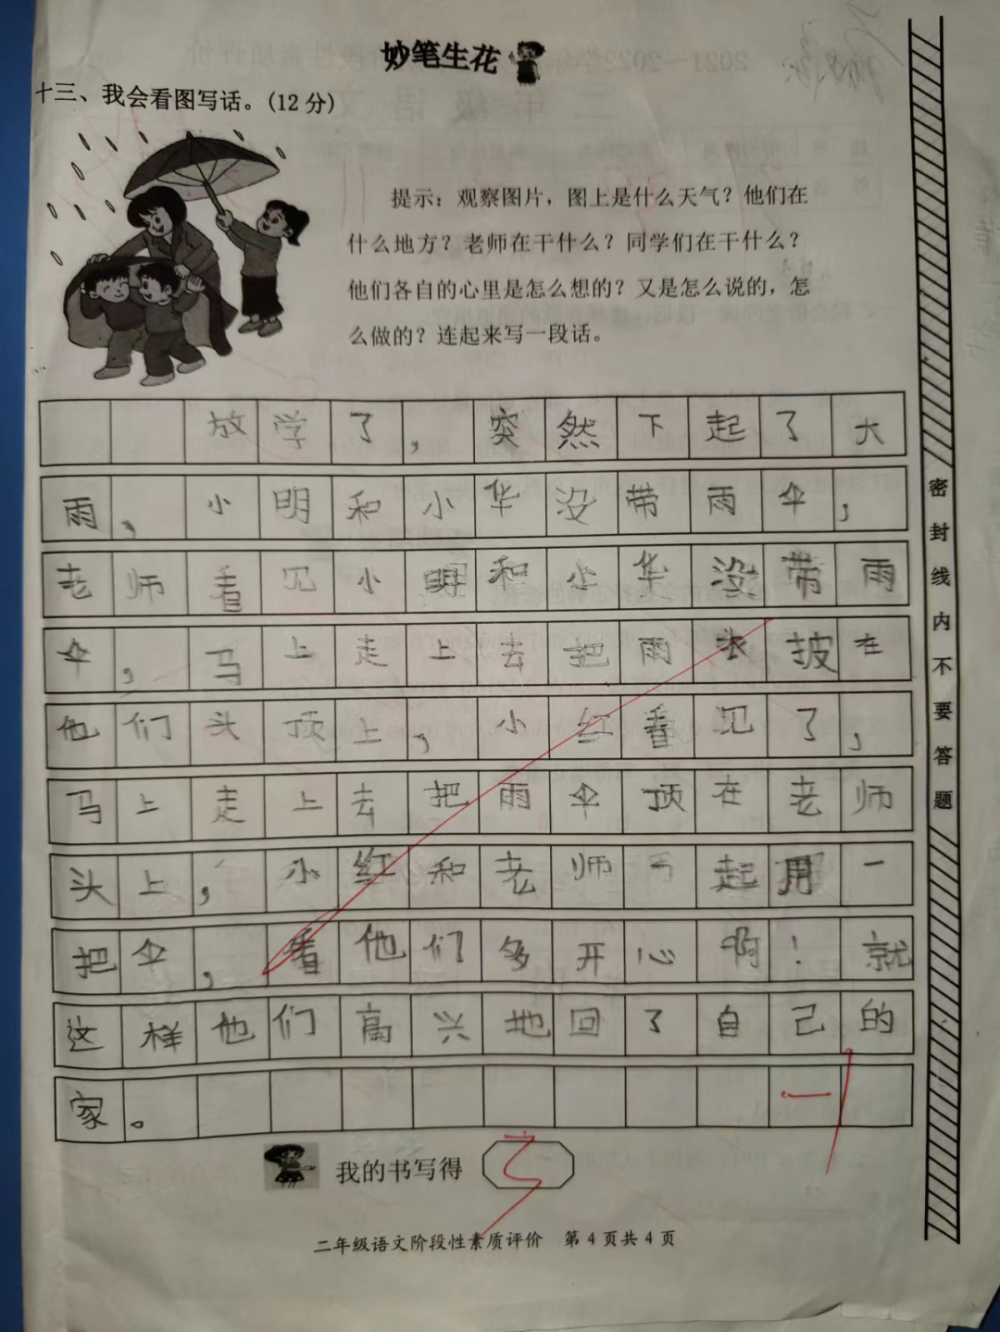 妙笔生花
十三、我会看图写话。(12分)
提示：观察图片，图上是什么天气？他们在
什么地方？老师在干什么？同学们在干什么？
他们各自的心里是怎么想的？又是怎么说的，怎
么做的？连起来写一段话。
放学了，突然下起了大
雨，小明和小华没带雨伞，
老师看见小明和小华没带雨
伞，马上走上去把雨衣披在
他们头顶上，小红看见了，
马上走上去把雨伞顶在老师
头上，小红和老师一起用一
把伞，看他们多开心啊！就
这样他们高兴地回了自己的
家。
-1
我的书写得
3
二年级语文阶段性素质评价 第4页共4页
密封线内不要答题